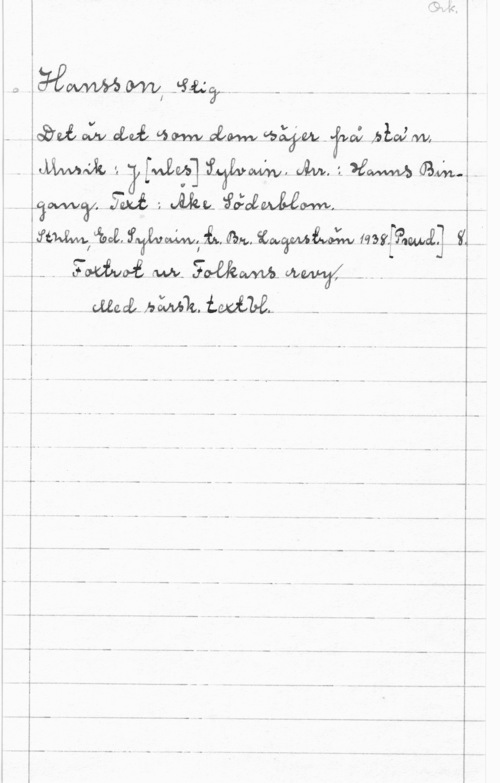 Ork.
Hansson, Stig
Det är det som dom säjer på sta'n.
Musik : J[ules] Sylvain. Arr. : Hanns Bin-
gang. Text : Åke Söderblom.
Sthlm, Ed. Sylvain, tr. Br. Lagerström 1938. [Pseud.] 8.
Foxtrot ur Folkans revy.
Med särsk. textbl.